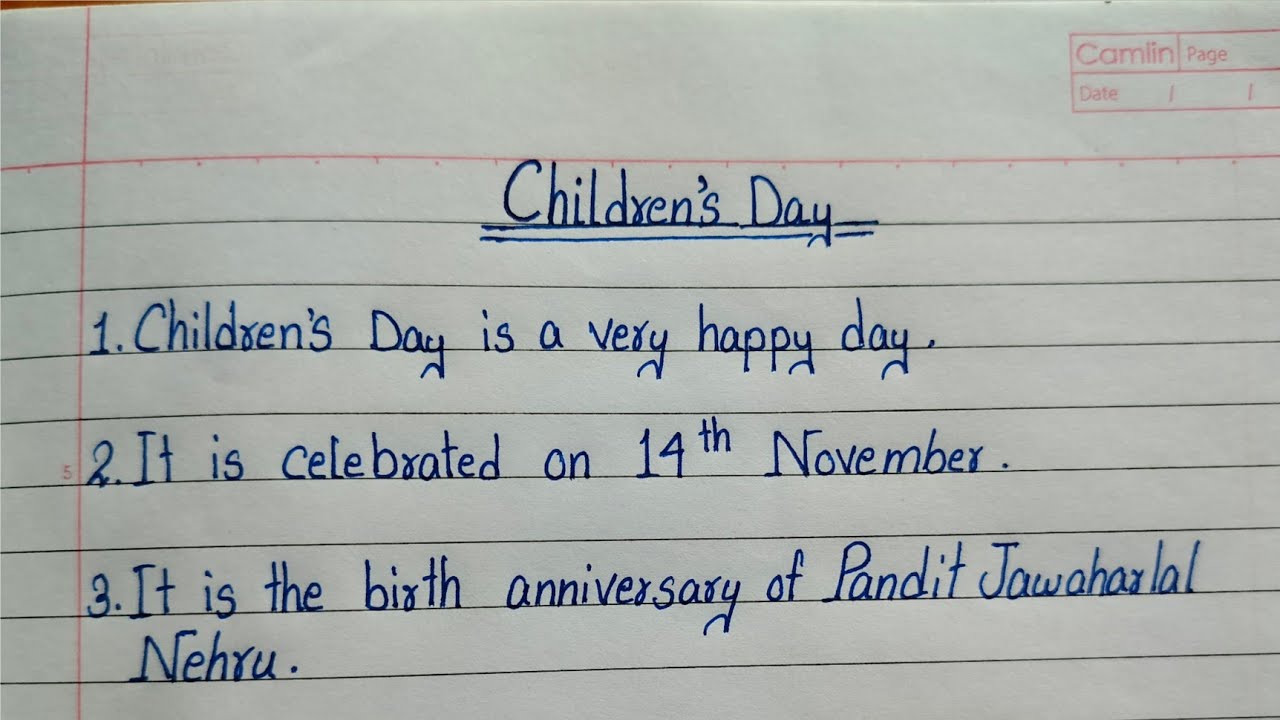 Camlin Page
Date / /
Children's Day
1. Children's Day is a very happy day.
2. It is celebrated on 14th November.
5
3. It is the birth anniversary of Pandit Jawaharlal
Nehru.